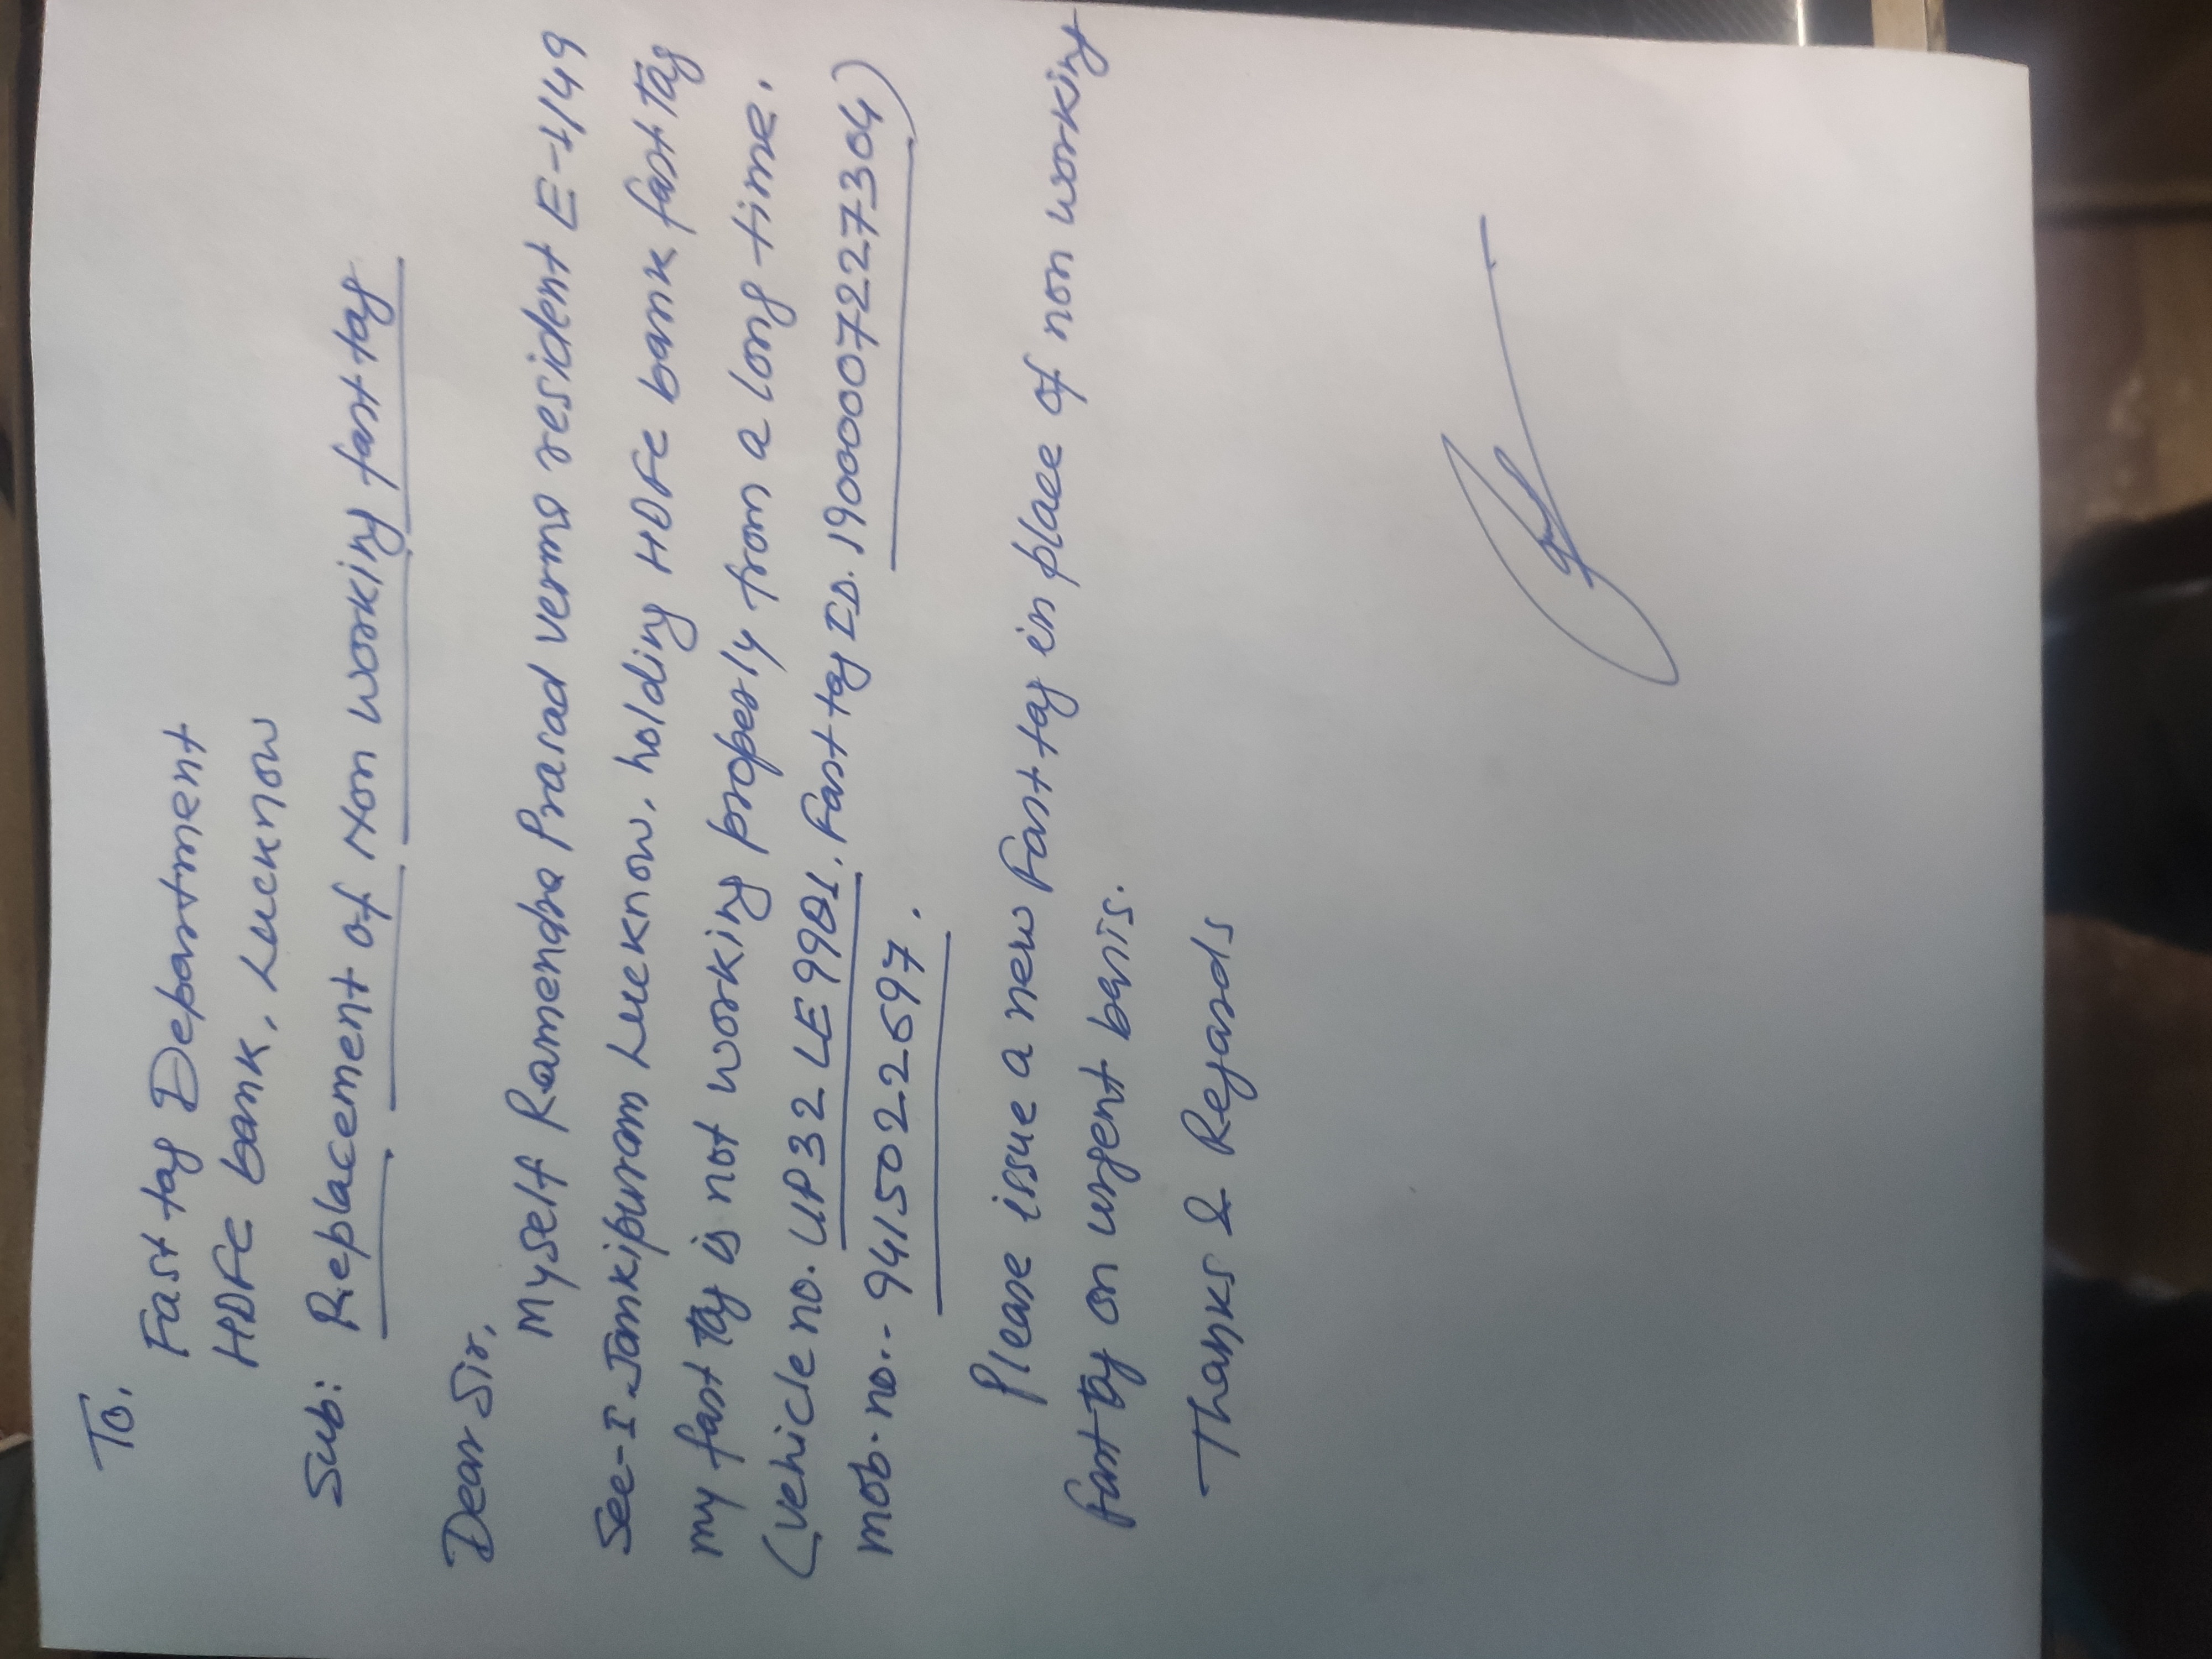 To,
Fast tag Department
HDFC bank, Lucknow
Sub: Replacement of Non working fast tag
Dear Sir,
Myself Ramendra Prasad verma resident E-1/49
Sec-I Jankipuram Lucknow, holding HDFC bank fast Tag
my fast Tag is not working properly from a long time.
(vehicle no. UP32 LE9901, Fast tag ID. 190000072227304)
mob. no.- 9415022697.
Please issue a new Fast tag in place of non working
fast Tag on urgent basis.
Thanks & Regards